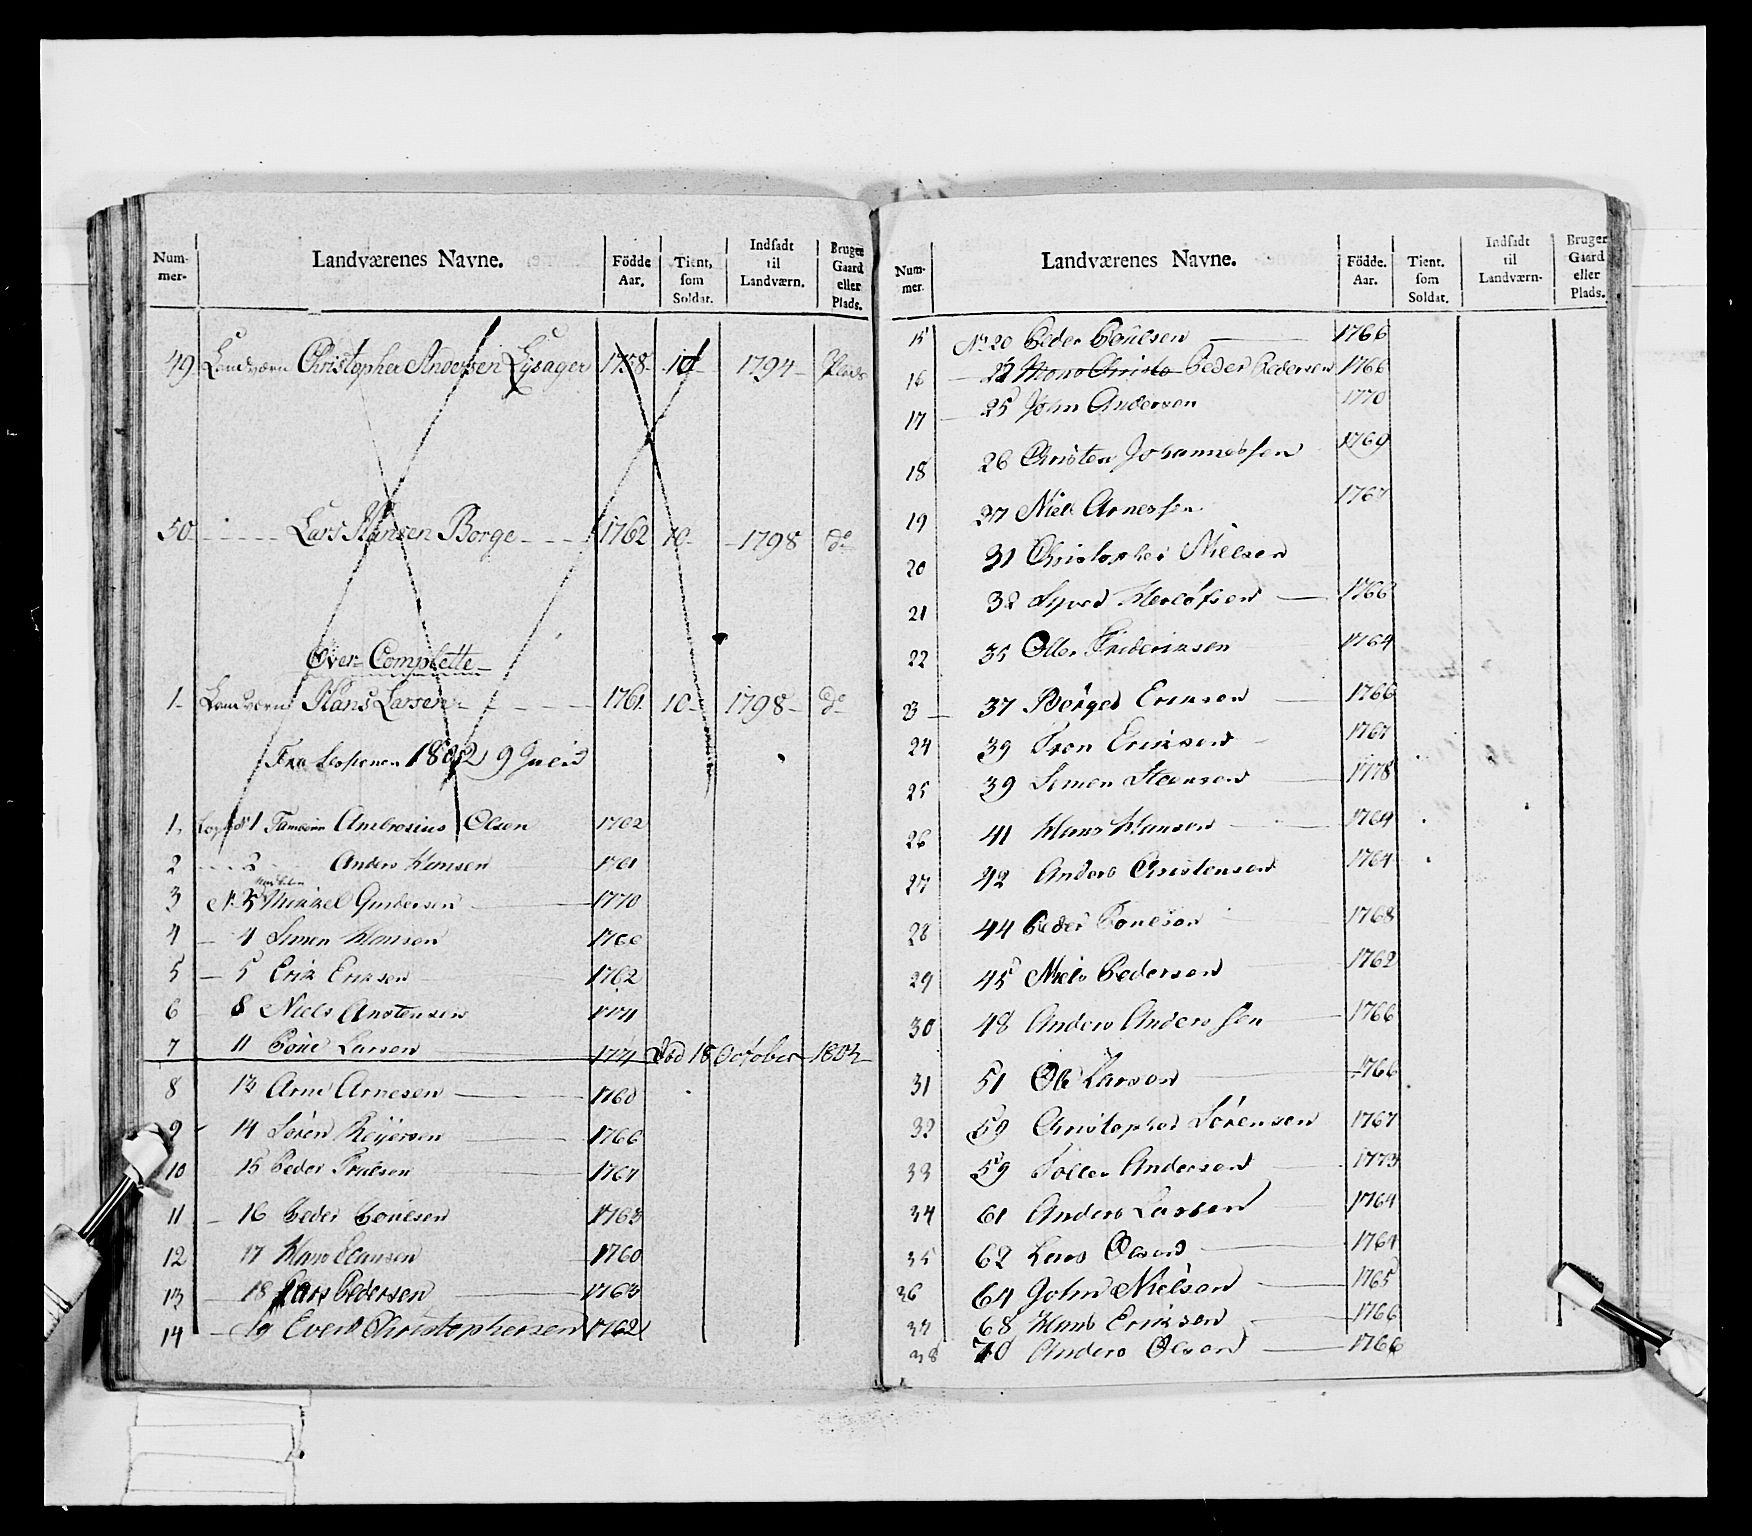 Num-mer- Landværenes Navne. Födde Aar. Tient, som Soldat. Indsadt til Landværn. Bruger Gaard eller Plads.
49 Landværn Christopher Andersen Lysager 1758 10 1794 Plads
50 Lars Hansen Borge 1762 10 1798 do
Over-Complette
1 Landværn Hans Larsen 1761 10 1798 do
Fra Sessionen 1802
1 1 Ambrosius Olsen 1762
2 2 Anders Hansen 1761
3 No 3 Mikkel Gundersen 1770
4 4 Simen Hansen 1766
5 5 Erik Eriksen 1762
6 8 Niels Anstensen 1771
7 11 Poul Larsen 1771 Död 18 October 1802
8 13 Arne Arnesen 1760
9 14 Sören Reyersen 1766
10 15 Peder Poulsen 1767
11 16 Peder Poulsen 1763
12 17 Hans Clausen 1760
13 18 Lars Pedersen 1763
14 19 Evend Christophersen 1762
Num-mer. Landværenes Navne. Födde. Aar. Tient. som Soldat. Indsadt til Landværn- Bruger Gaard eller Plads.
15 No 20 Peder Poulsen 1766
16 22 Peder Pedersen 1766
17 25 John Andersen 1770
18 26 Christen Johannessen 1769
19 27 Niels Arnessen 1767
20 31 Christopher Nielsen
21 32 Syver Herlofsen 1766
22 35 Oller Frideriksen 1764
23 37 Börger Eriksen 1766
24 39 Tron Eriksen 1767
25 39 Simen Steensen 1778
26 41 Hans Hansen 1764
27 42 Anders Christensen 1764
28 44 Peder Poulsen 1768
29 45 Niels Pedersen 1762
30 48 Anders Andersen 1766
31 51 Ole Larsen 1766
32 59 Christopher Sörensen 1767
33 59 Toller Andersen 1773
34 61 Anders Larsen 1764
35 62 Lars Olsen 1764
36 64 John Nielsen 1765
37 68 Hans Eriksen 1766
38 70 Anders Olsen 1766